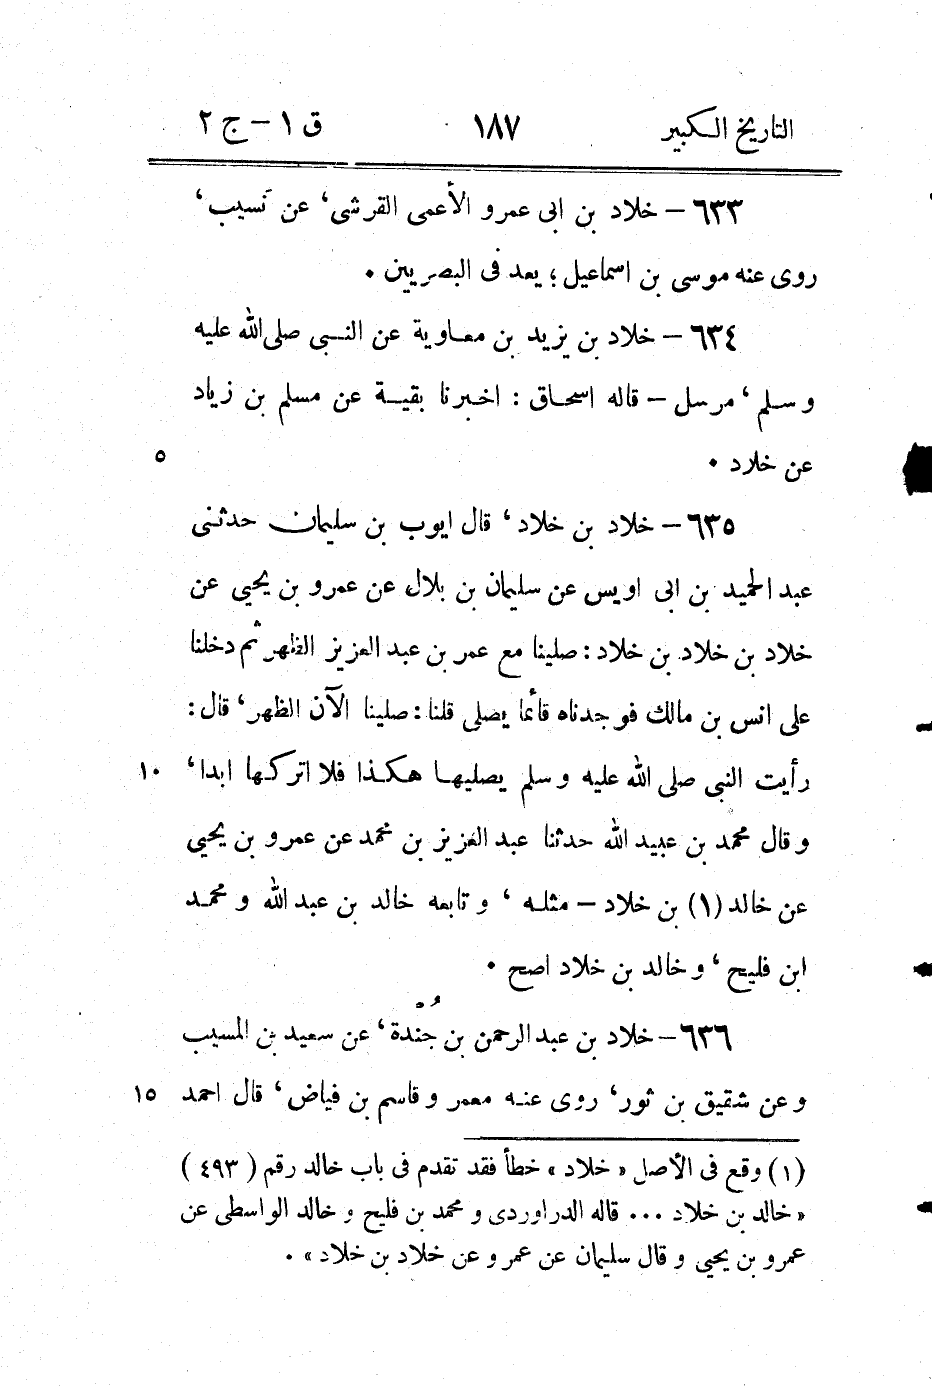 التاريخ الكبير ١٨٧ ق ١ – ج ٢
٦٣٣ – خلاد بن ابى عمرو الأعمى القرشى، عن نسيب،
روى عنه موسى بن اسماعيل؛ يعد فى البصريين .
٦٣٤ – خلاد بن يزيد بن معاوية عن النبى صلى الله عليه
وسلم، مرسل – قاله اسحاق : اخبرنا بقية عن مسلم بن زياد
عن خلاد . ٥
٦٣٥ – خلاد بن خلاد، قال ايوب بن سليمان حدثنى
عبد الحميد بن ابى اويس عن سليمان بن بلال عن عمرو بن يحيى عن
خلاد بن خلاد بن خلاد : صلينا مع عمر بن عبد العزيز الظهر ثم دخلنا
على انس بن مالك فوجدناه قائما يصلى قلنا : صلينا الآن الظهر، قال :
رأيت النبى صلى الله عليه وسلم يصليها هكذا فلا اتركها ابدا، ١٠
وقال محمد بن عبيد الله حدثنا عبد العزيز بن محمد عن عمرو بن يحيى
عن خالد (١) بن خلاد – مثله، وتابعه خالد بن عبد الله ومحمد
ابن فليح، وخالد بن خلاد اصح .
٦٣٦ – خلاد بن عبد الرحمن بن جُندة، عن سعيد بن المسيب
وعن شقيق بن ثور، روى عنه معمر وقاسم بن فياض، قال احمد ١٥
(١) وقع فى الأصل « خلاد » خطأ فقد تقدم فى باب خالد رقم ( ٤٩٣ )
« خالد بن خلاد ... قاله الدراوردى ومحمد بن فليح وخالد الواسطى عن
عمرو بن يحيى وقال سليمان عن عمرو عن خلاد بن خلاد » .